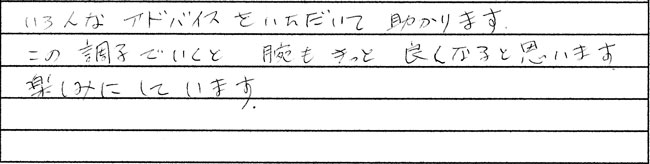 いろんな アドバイスをいただいて 助かります.
この調子でいくと 腕もきっと 良くなると思います
楽しみにしています.